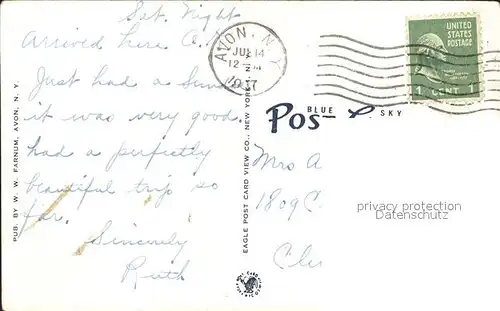 Sat. Night
Arrived here
Just had a
it was very good.
had a perfectly
beautiful trip so
far.
Sincerely
Ruth
PUB. BY W. W. FARNUM, AVON, N. Y.
AVON, N.Y.
12
EAGLE POST CARD VIEW CO., NEW YORK
BLUE SKY
Pos
UNITED
STATES
POSTAGE
1 CENT 1
Mrs A
1809 C
privacy protection
Datenschutz